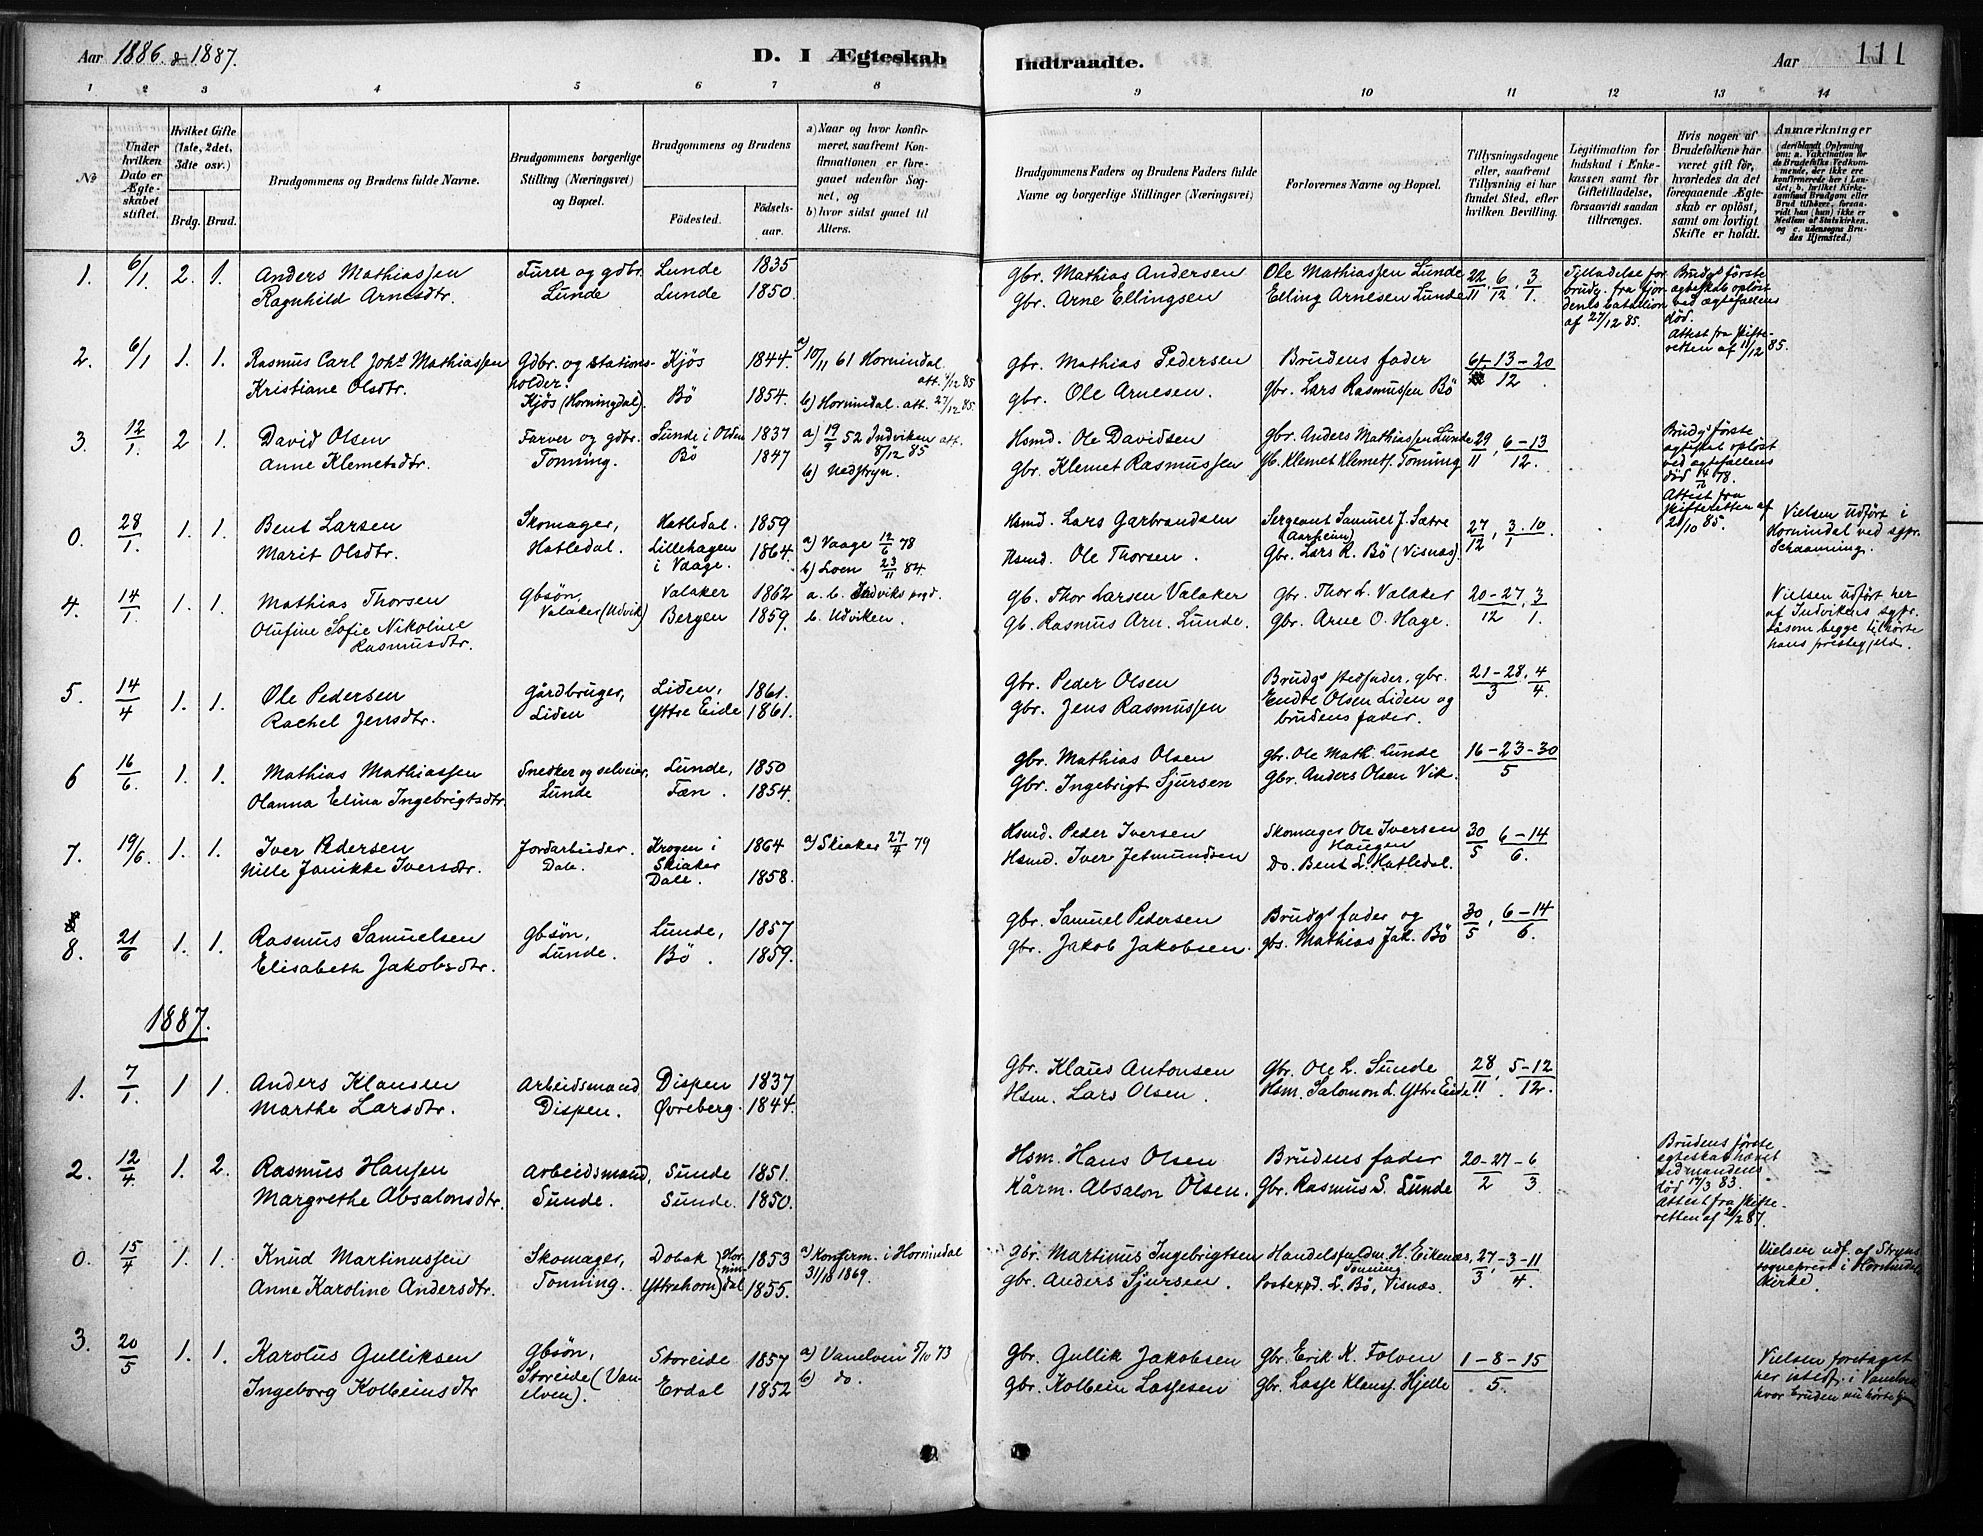 Aar 1886 & 1887.
D. I Ægteskab
Indtraadte.
Aar
111
1 2 3 4 5 6 7 8 9 10 11 12 13 14
No
Under hvilken Dato er Ægteskabet stiftet.
Hvilket Gifte (1ste, 2det, 3die osv.)
Brdg. Brud.
Brudgommens og Brudens fulde Navne.
Brudgommens borgerlige Stilling (Næringsvei) og Bopæl.
Brudgommens og Brudens
Fødested.
Fødselsaar.
a) Naar og hvor konfirmeret, saafremt Konfirmationen er foregaaet udenfor Sognet, og
b) hvor sidst gaaet til Alters.
Brudgommens Faders og Brudens Faders fulde Navne og borgerlige Stillinger (Næringsvei)
Forlovernes Navne og Bopæl.
Tillysningsdagene eller, saafremt Tillysning ei har fundet Sted, efter hvilken Bevilling.
Legitimation for Indskud i Enkekassen samt for Giftetilladelse, forsaavidt saadan tiltrænges.
Hvis nogen af Brudefolkene har været gift før, hvorledes da det foregaaende Ægteskab er opløst, samt om lovligt Skifte er holdt.
Anmærkninger (deriblandt Oplysning om: a. Vakcination for de Brudefolks Vedkommende, der ikke ere konfirmerede her i Landet; b. hvilket Kirkesamfund Brudgom eller Brud tilhører, forsaavidt han (hun) ikke er Medlem af Statskirken, og c. udensogns Brudes Hjemsted.)
1. 6/1 2. 1. Anders Mathiassen Furer og gdbr. Lunde 1835 Gbr. Mathias Andersen Ole Mathiassen Lunde 22/11, 6/12, 3/1. Tilladelse for brudg. fra fjordenes batallion af 27/12 85. Brudgs første ægteskab opløst ved ægtefællens død. Attest fra skifteretten af 11/12 85.
Ragnhild Arnesdtr. Lunde Lunde 1850. Gbr. Arne Ellingsen Elling Arnesen Lunde
2. 6/1 1. 1. Rasmus Carl Johs Mathiassen Gdbr. og stationsholder. Kjös 1844. a) 10/11 61 Hornindal att. /12 85 gbr. Mathias Pedersen Brudens fader 6-13-20/12.
Kristiane Olsdtr. Kjös (Horningdal). Bö 1854. b) Hornindal. att. 27/12 85. gbr. Ole Arnesen. gbr. Lars Rasmussen Bö
3. 12/1. 2 1. David Olsen Farver og gdbr. Sunde i Olden 1837 a) 19/9 52 Indviken att. 8/12 85 Hsmd. Ole Davidsen gbr. Anders Mathiassen Lunde 29/11, 6-13/12. Brudgs første egteskab opløst ved egtefællens død 78. Attest fra skifteretten af 21/10 85.
Anne Klemetsdtr. Tonning. Bö 1847 b) Nedstryn. gbr. Klemet Rasmussen gb. Klemet Klemets. Tonning
0. 28/1. 1. 1. Bent Larsen Skomager, Hatledal. 1859 Hsmd. Lars Garbrandsen Sergeant Samuel J. Sætre (Aarheim) 27/12, 3.10/1 Vielsen udført i Hornindal ved sgpr. Schaanning.
Marit Olsdtr. Hatledal. Lillehagen i Vaage. 1864. a) Vaage 12/6 78 b) Loen 23/11 84. Hsmd. Ole Thorsen. Gbr. Lars R. Bö (Visnæs).
4. 14/1. 1. 1. Mathias Thorsen Gbsøn, Valaker 1862 a. b. Indviks prgd. gb. Thor Larsen Valaker gbr. Thor L. Valaker 20-27/12, 3/1. Vielsen udført her af Indvikens sgpr. såsom begge tilhørte hans prestegjeld.
Olufine Sofie Nikoline Rasmusdtr. Valaker (Udvik) Bergen 1859. b. Udviken. gb. Rasmus Arn. Lunde. gbr. Arne O. Hage.
5. 14/4 1. 1. Ole Pedersen Gårdbruger, Liden, 1861. Gbr. Peder Olsen Brudgs stedfader, gbr. Endre Olsen Liden og brudens fader. 21-28/3, 4/4.
Rachel Jensdtr. Liden Yttre Eide 1861. gbr. Jens Rasmussen
6 16/6. 1. 1. Mathias Mathiassen Snedker og selveier, Lunde, 1850 gbr. Mathias Olsen gbr. Ole Math. Lunde 16-23-30/5
Olanna Elina Ingebrigtsdtr. Lunde Fæn. 1854. Gbr. Ingebrigt Sjursen gbr. Anders Olsen Vik.
7. 19/6. 1. 1. Iver Pedersen Jordarbeider. Krogen i Skiaker 1864 a) Skiaker 27/4 79 Hsmd. Peder Iversen Skomager Ole Iversen Haugen 30/5 6-14/6.
Nille Jonikke Iversdtr. Dale. Dale. 1858. Hsmd. Iver Jetmundsen Do. Bent L. Hatledal.
8. 21/6 1. 1. Rasmus Samuelsen Gbsøn, Lunde, 1857 gbr. Samuel Pedersen Brudgs fader og 30/5, 6-14/6.
Elisabeth Jakobsdtr. Lunde. Bö. 1859. gbr. Jakob Jakobsen. gbs. Mathias Jak. Bö
1887.
1. 7/1. 1 1. Anders Klausen Arbeidsmand Dispen 1837 Gbr. Klaus Antonsen Gbr. Ole L. Sunde 28/11, 5-12/12.
Marthe Larsdtr. Dispen. Øvreberg. 1844. Hsm. Lars Olsen. Hsm. Salomon L. Yttre Eide
2. 12/4. 1. 2. Rasmus Hansen Arbeidsmand, Sunde 1851. Hsm. Hans Olsen Brudens fader 20-27/2 - 6/3. Brudens første egteskab hævet ved mandens død 17/3 83. Attest fra skifteretten af 21/2 87.
Margrethe Absalonsdtr. Sunde. Sunde. 1850. Kårm. Absalon Olsen. Gbr. Rasmus S. Sunde
0. 15/4 1. 1. Knud Martinussen Skomager, Dobak (Hornindal) 1853 a) Konfirm. i Hornindal 31/10 1869. gbr. Martinus Ingebrigtsen Handelsfuldm. H. Eikenæs, Tonning 27/3, -3-11/4. Vielsen udf. af Stryns sogneprest i Hornindal kirke.
Anne Karoline Andersdtr. Tonning. Yttrehorn 1855. gbr. Anders Sjursen. Postexpd. L. Bö, Visnæs.
3. 20/5 1. 1. Karolus Gulliksen Gbsøn, Storeide 1857 a) Vanelven 5/10 73 Gbr. Gullik Jakobsen Gbr. Erik K. Folven 1-8-15/5. Vielsen foretaget her istedf. i Vanelven hvor bruden nu hørte hjem
Ingeborg Kolbeinsdtr Storeide (Vanelven). Erdal 1852 b) do. Gbr. Kolbein Lassesen gbr. Lasse Klaus. Hjelle